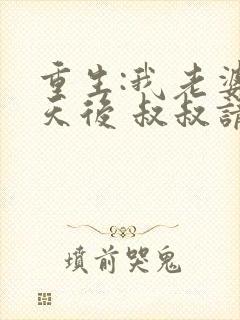 重生:我老婆
天后 叔叔請
墳前哭鬼